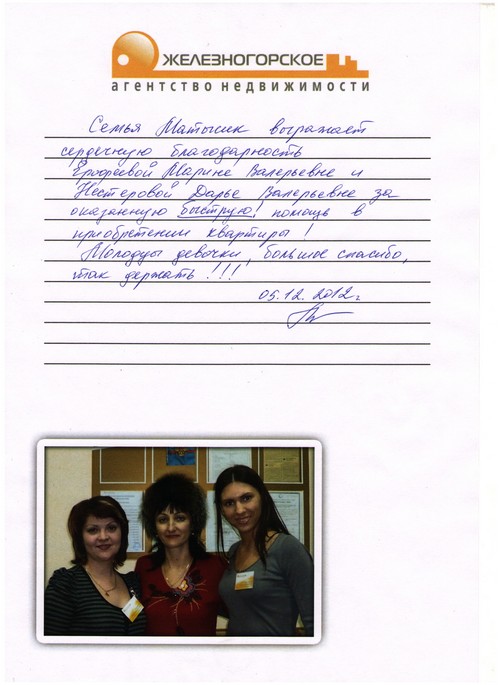 ЖЕЛЕЗНОГОРСКОЕ
агентство недвижимости
Семья Матысик выражает
сердечную благодарность
Ерофеевой Марине Валерьевне и
Нестеровой Дарье Валерьевне за
оказанную быструю помощь в
приобретении квартиры!
Молодцы девочки, большое спасибо,
так держать!!!
05.12.2012г.